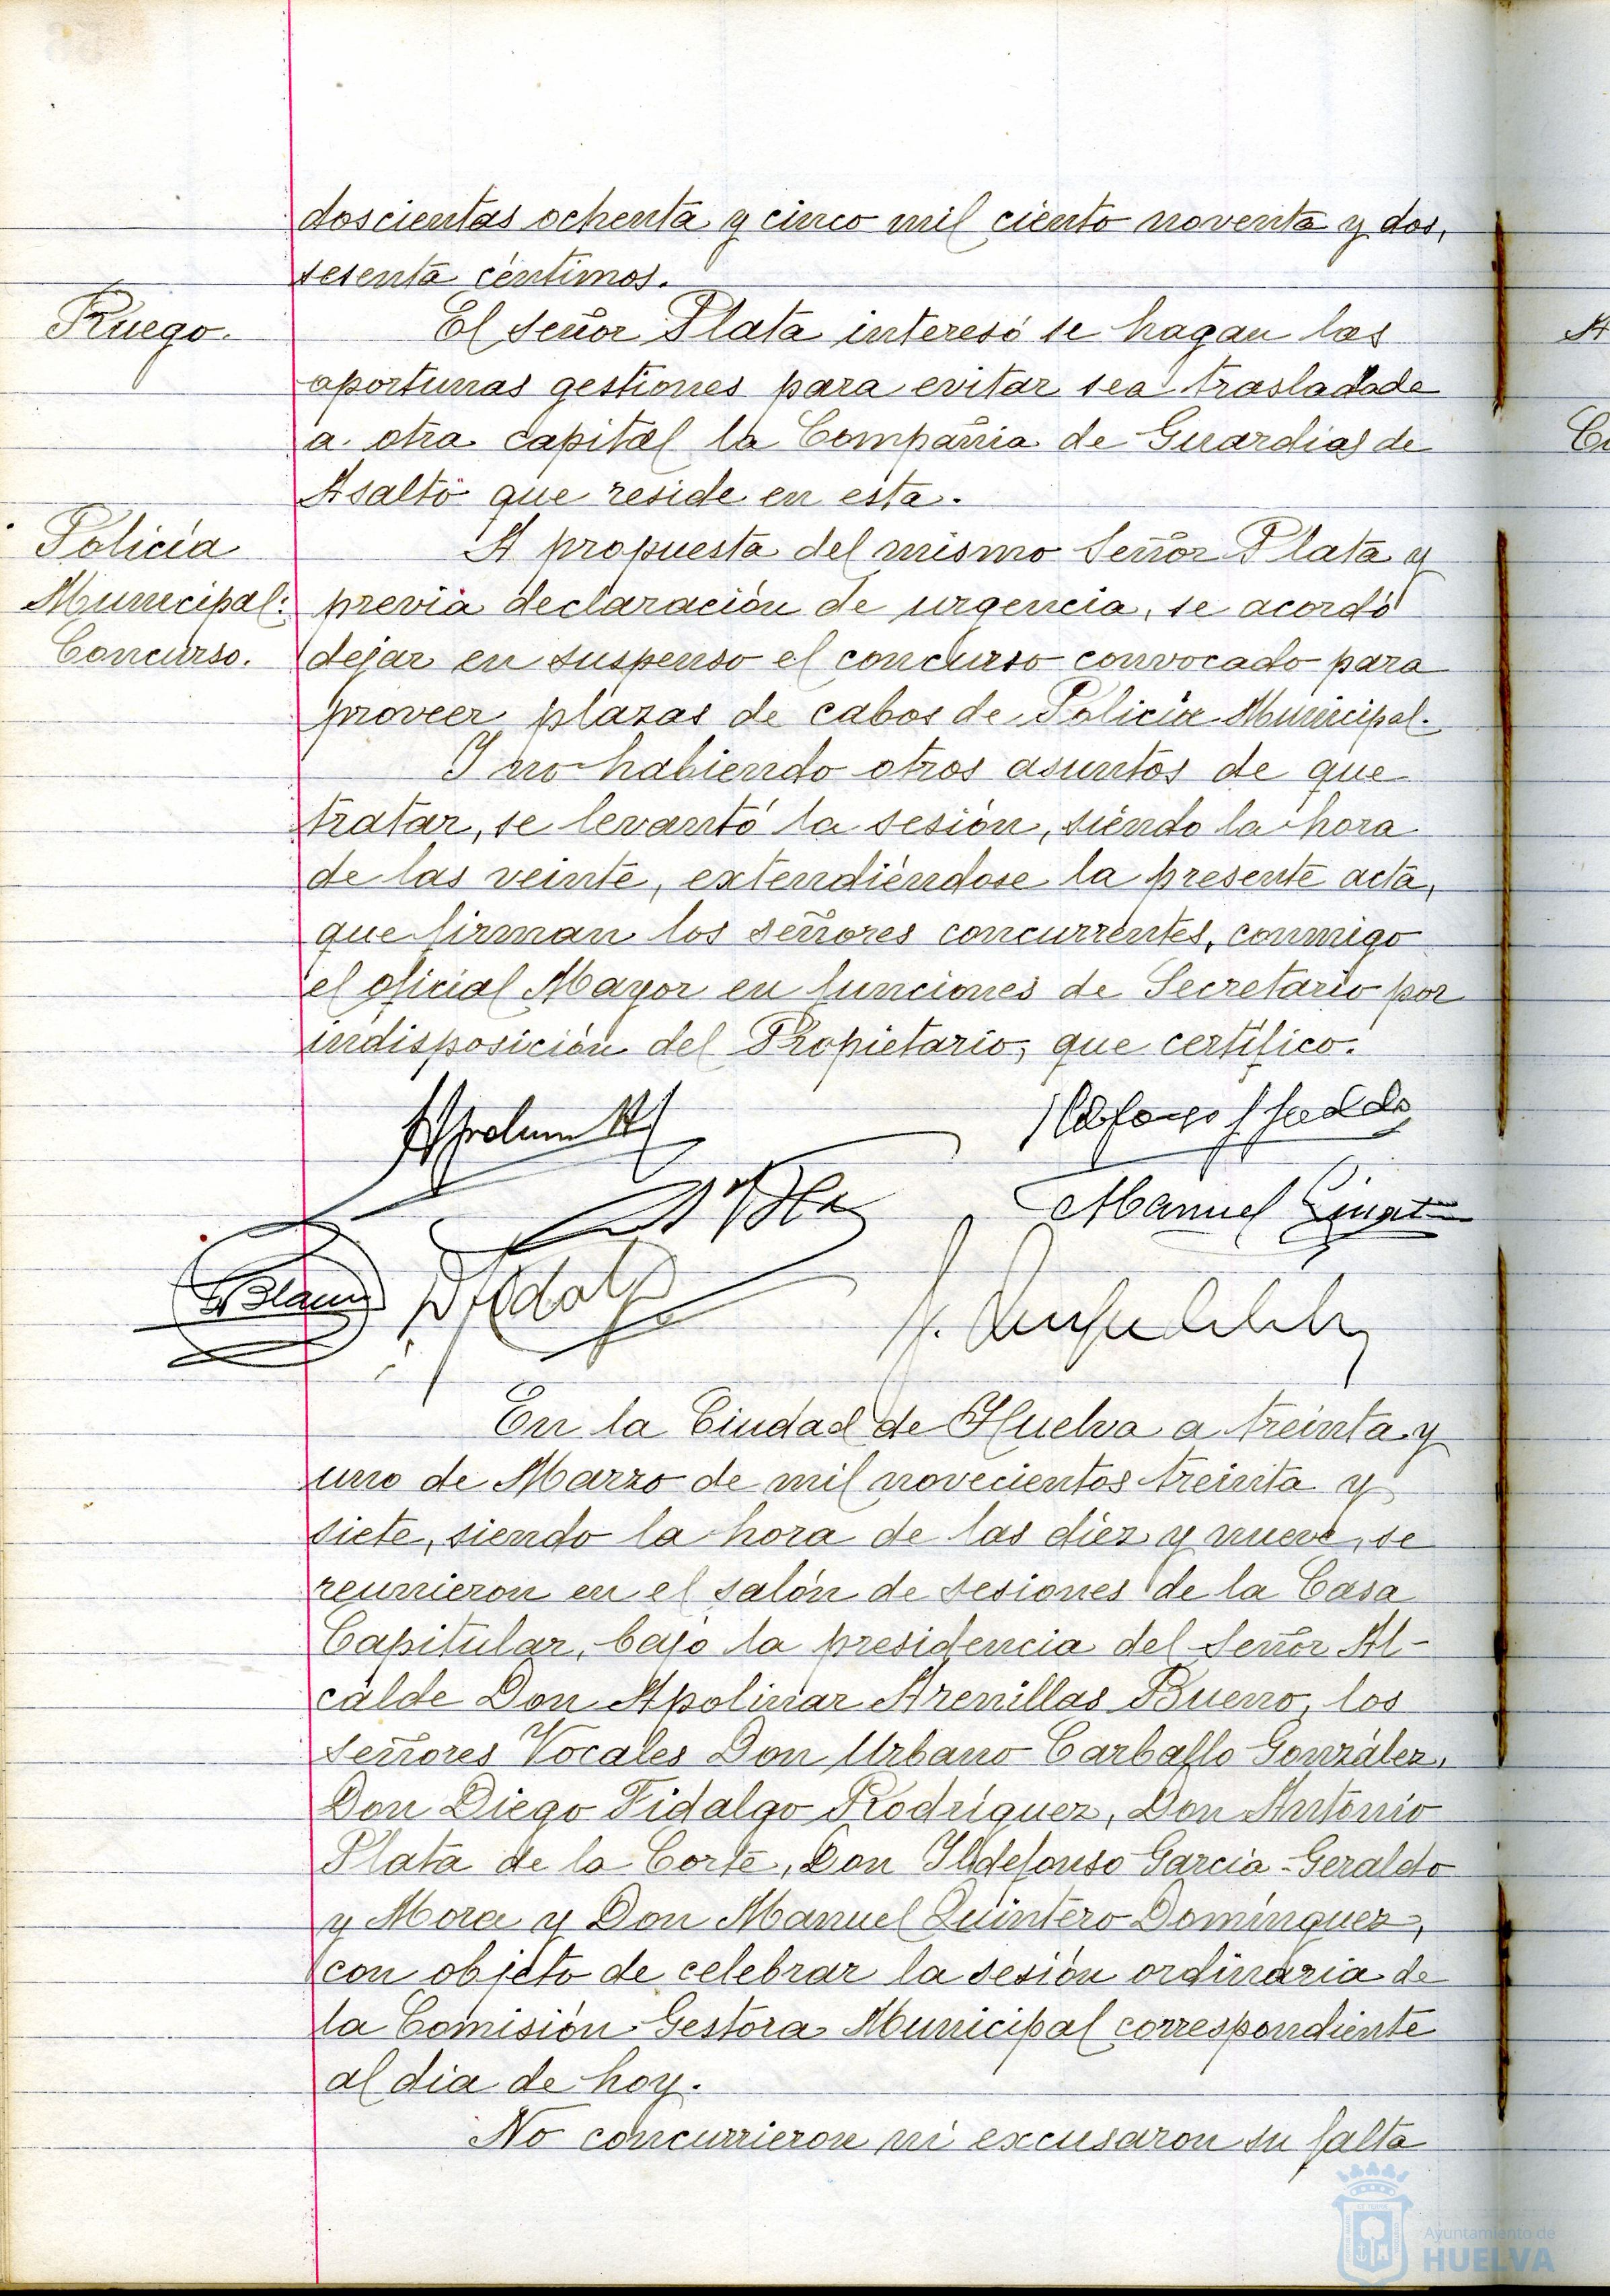 doscientas ochenta y cinco mil ciento noventa y dos,
sesenta céntimos.
Ruego.
El Señor Plata interesó se hagan las
oportunas gestiones para evitar sea trasladada
a otra capital la Compañia de Guardias de
Asalto que reside en esta.
Policía
Municipal:
Concurso.
A propuesta del mismo Señor Plata y
previa declaración de urgencia, se acordó
dejar en suspenso el concurso convocado para
proveer plazas de cabos de Policía Municipal.
Y no habiendo otros asuntos de que
tratar, se levantó la sesión, siendo la hora
de las veinte, extendiéndose la presente acta,
que firman los señores concurrentes, conmigo
el oficial Mayor en funciones de Secretario por
indisposición del Propietario, que certifico.
Manuel
En la Ciudad de Huelva a treinta y
uno de Marzo de mil novecientos treinta y
siete, siendo la hora de las diez y nueve, se
reunieron en el salón de sesiones de la Casa
Capitular, bajo la presidencia del Señor Al-
calde Don Apolinar Arenillas Bueno, los
Señores Vocales Don Urbano Carballo González,
Don Diego Fidalgo Rodríguez, Don Antonio
Plata de la Corte, Don Ildefonso García-Geraldo
y Mora y Don Manuel Quintero Domínguez,
con objeto de celebrar la sesión ordinaria de
la Comisión Gestora Municipal correspondiente
al dia de hoy.
No concurrieron ni excusaron su falta
Ayuntamiento de
HUELVA